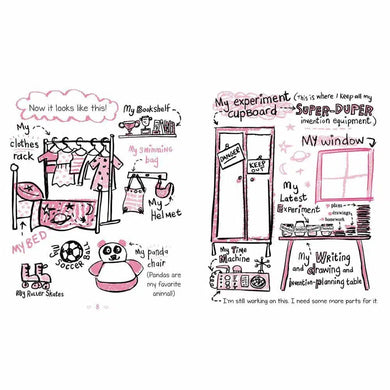 Now it looks like this!
My Bookshelf
My
clothes
rack
My swimming
bag
My
Helmet
MY BED
My
Soccer Ball
My panda
chair
(Pandas are
my favorite
animal!)
My Roller Skates
8
My experiment
cupboard
(This is where I keep all my
SUPER-DUPER
invention equipment)
DANGER
KEEP
OUT
My window
My
Latest
Experiment
plans
drawings
homework
My Time
Machine
My Writing
and drawing and
invention-planning table
I'm still working on this. I need some more parts for it.